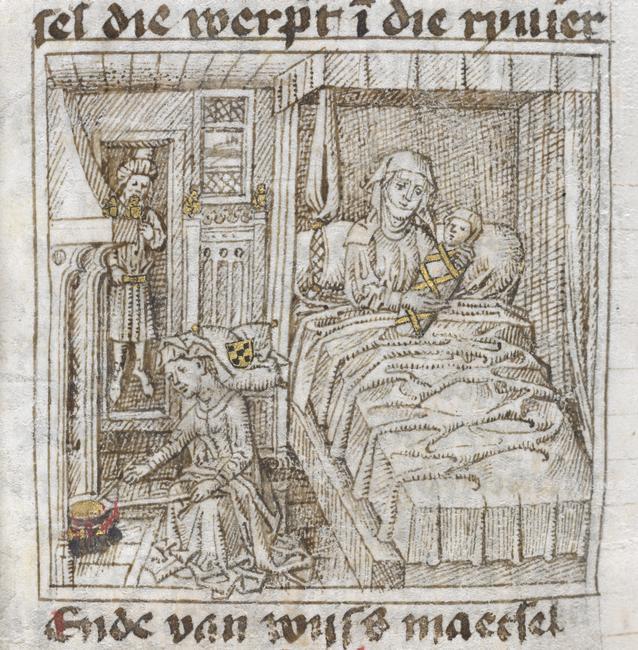 sel die werpt ī die ryuier
Ende van wijss maetsel